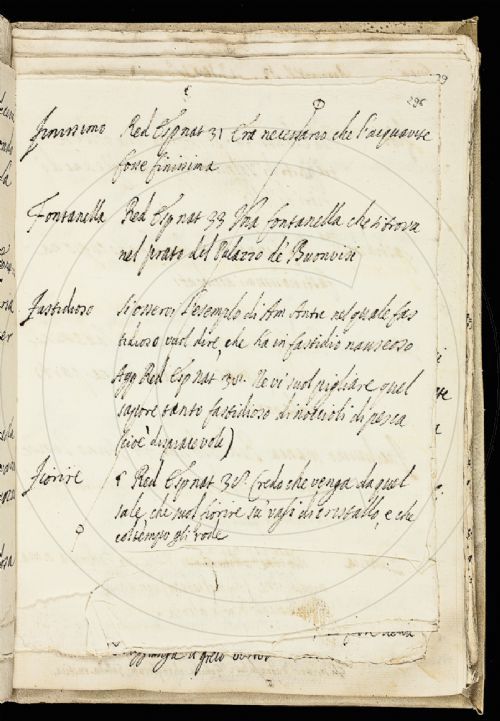 29
296
Finissimo Red Esp nat 31 Era necessario che l'acquavite
fosse finissima
Fontanella Red Esp nat 33 Una fontanella che si trova
nel prato del Palazzo de Buonvisi
Fastidioso Si osservi l'esempio di Am Ante nel quale fas
tidioso vuol dire, che ha in fastidio nauseoso
Agg Red Esp nat 38. No vi suol pigliare quel
sapore tanto fastidioso di noccioli di pesca
(cioè dispiacevole)
Fiorire Red Esp nat 38. Credo che venga da quel
sale, che suol fiorire su' vasi di cristallo, e che
col tempo gli rode